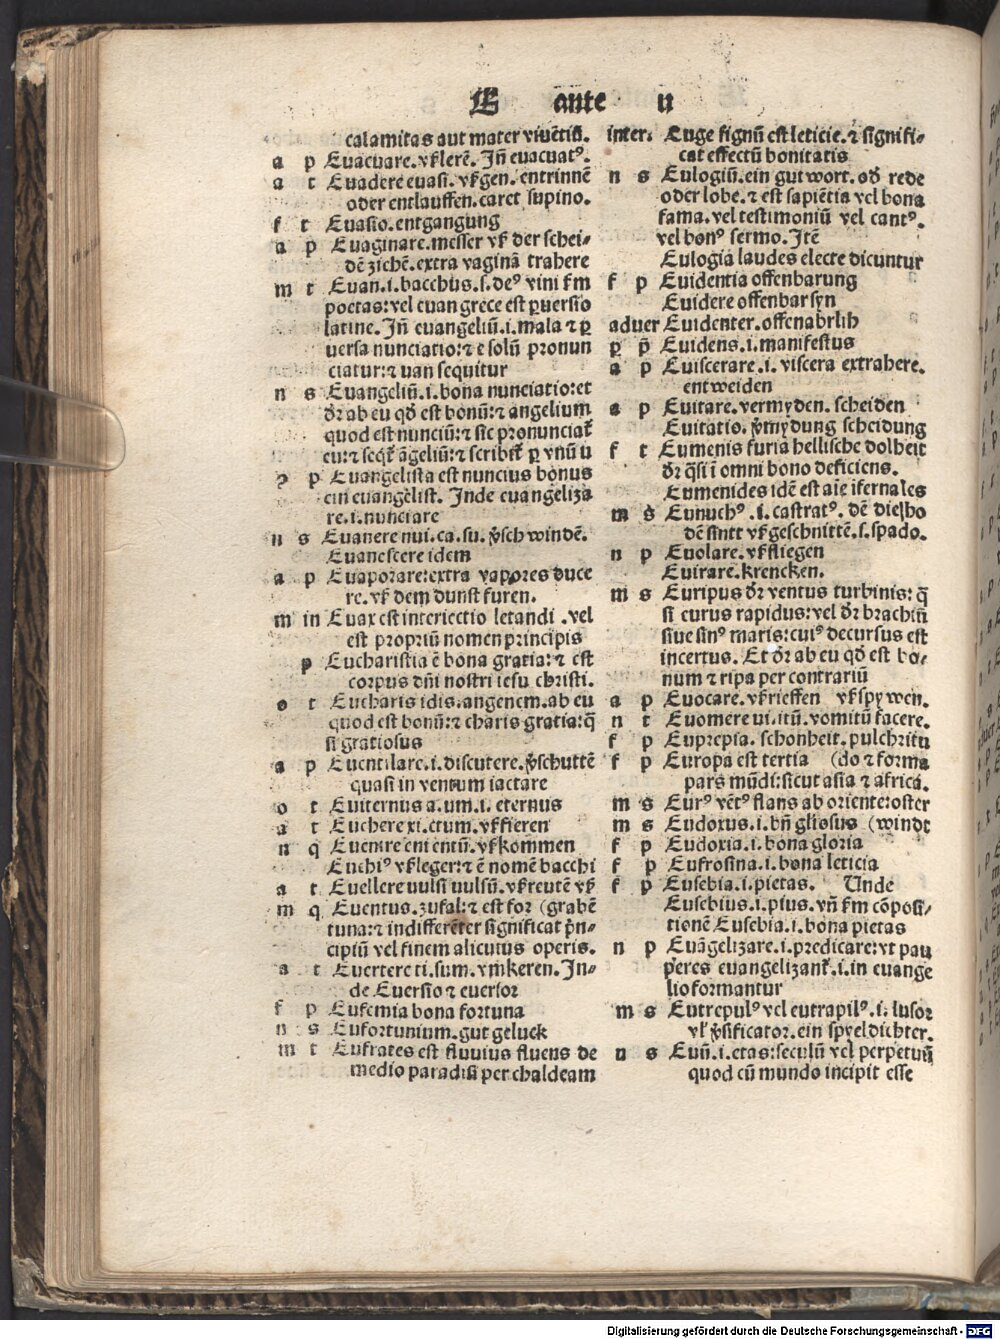 E ante u
calamitas aut mater viuētiū.
a p Euacuare. vſz lerē. Jñ euacuatꝰ.
a t Euadere euasi. vſz gen. entrinnē
oder entlauffen. caret supino.
f t Euasio. entgangung
a p Euaginare. messer vſz der schei⸗
dē zichē. extra vaginā trahere
m t Euan. i. bacchus. s. deꝰ vini ſm
poetas: vel euan grece est ꝑuersio
latine. Jñ euangeliū. i. mala ⁊ ꝑ
uersa nunciatio: ⁊ e solū pronun
ciatur: ⁊ uan sequitur
n s Euangeliū. i. bona nunciatio: et
dr̄ ab eu qď est bonū: ⁊ angelium
quod est nunciū: ⁊ sic pronunciat᷑
eu: ⁊ seqt᷑ āgeliū: ⁊ scribit᷑ ꝑ vnū u
p Euangelista est nuncius bonus
ein euangelist. Inde euangeliza
re. i. nunciare
n s Euanere nui. ca. su. v̓schwindē.
Euanescere idem
a p Euaporare: extra vapores duce
re. vſz dem dunst furen.
m in Euax est interiectio letandi. vel
est propriū nomen principis
p Eucharistia ē bona gratia: ⁊ est
corpus dn̄i nostri iesu christi.
o t Eucharis idis. angenem. ab eu
quod est bonū: ⁊ charis gratia: q̄
si gratiosus
a p Euentilare. i. discutere. v̓schuttē
quasi in ventum iactare
o t Euiternus a. um. i. eternus
a t Euehere xi. ctum. vſz fieren
n q Euenire eni entū. vſz kommen
Euchiꝰ vſz leger: ⁊ ē nomē bacchi
a t Euellere uulsi uulsū. vſz reutē vſz
m q Euentus. zufal: ⁊ est for (grabē
tuna: ⁊ indifferēter significat prīn⸗
cipiū vel finem alicuius operis.
a t Euertere ti. sum. vmkeren. Jn⸗
de Euersio ⁊ euersor
f p Eufemia bona fortuna
n s Eufortunium. gut geluck
m t Eufrates est fluuius fluens de
medio paradisi per chaldeam
inter. Euge signū est leticie. ⁊ signifi⸗
cat effectū bonitatis
n s Eulogiū. ein gut wort. oď rede
oder lobe. ⁊ est sapiētia vel bona
fama. vel testimoniū vel cantꝰ.
vel bonꝰ sermo. Jtē
Eulogia laudes electe dicuntur
f p Euidentia offenbarung
Euidere offenbar syn
aduer Euidenter. offenabrlih
p̱ p̄ Euidens. i. manifestus
a p Euiscerare. i. viscera extrahere.
entweiden
a p Euitare. vermyden. scheiden
Euitatio. v̓mydung scheidung
f t Eumenis furia hellische dolheit
dr̄ q̄si i omni bono deficiens.
Eumenides idē est aīe īfernales
m s Eunuchꝰ. i. castratꝰ. dē die ho
dē sintt vſz geschnittē. s. spado.
n p Euolare. vſz fliegen
Euirare. krencken.
m s Euripus dr̄ ventus turbinis: q̄
si curus rapidus: vel dr̄ brachiū
siue sinꝰ maris: cuiꝰ decursus est
incertus. Et dr̄ ab eu qď est bo⸗
num ⁊ ripa per contrariū
a p Euocare. vſz rieffen vſz spywen.
n t Euomere ui. itū. vomitū facere.
f p Euprepia. schonheit. pulchritu
f p Europa est tertia (do ⁊ forma
pars mūdi: sicut asia ⁊ africa.
m s Eurꝰ vētꝰ flans ab oriente: oster
m s Eudoxus. i. bn̄ gliosus (windt
f p Eudoxia. i. bona gloria
f p Eufrosina. i. bona leticia
f p Eusebia. i. pietas. Unde
Eusebius. i. pius. vn̄ ſm cōposi⸗
tionē Eusebia. i. bona pietas
n p Euāgelizare. i. predicare: vt pau
peres euangelizant᷑. i. in euange
lio formantur
m s Eutrepulꝰ vel eutrapilꝰ. i. lusor
vl̓ v̓sificator. ein spyeldichter.
n s Euū. i. etas: seculū vel perpetuū
quod cū mundo incipit esse
Digitalisierung gefördert durch die Deutsche Forschungsgemeinschaft - DFG